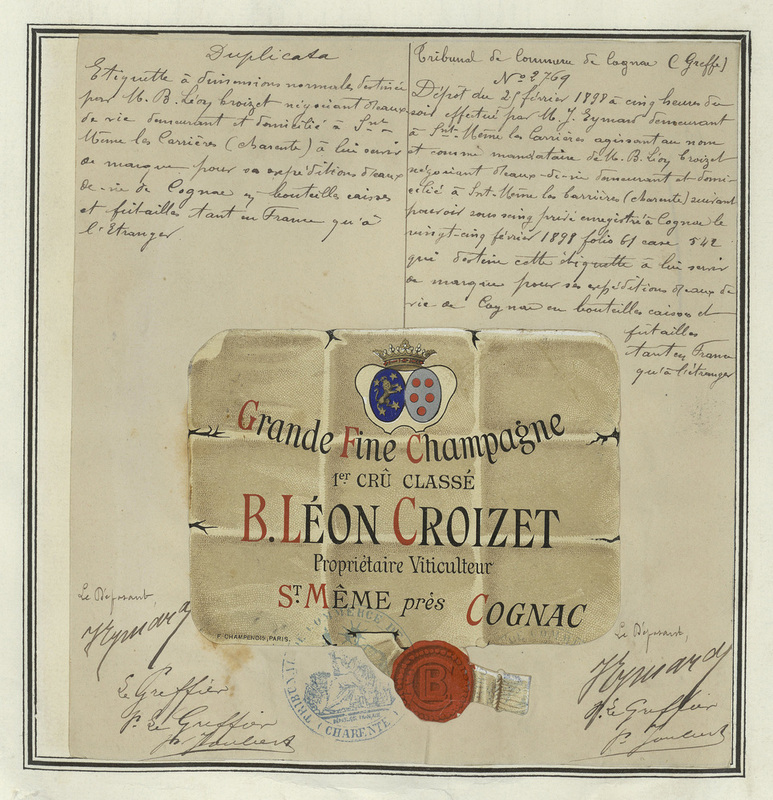 Duplicata
Etiquette à dimensions normales destinée
par M. B. Léon Croizet négociant d'eaux
de vie demeurant et domicilié à Snt-
Même les Carrières (Charente) à lui servir
de marque pour ses expéditions d'eaux
de-vie de Cognac en bouteilles caisses
et futailles tant en France qu'à
l'Etranger
Tribunal de Commerce de Cognac (Greffe)
No 2769
Dépot du 25 février 1898 à cinq heures du
soir effectué par M. J. Eymard demeurant
à Snt-Même les Carrières agissant au nom
et comme mandataire de M. B. Léon Croizet
négociant d'eaux-de-vie demeurant et domi-
cilié à Snt-Même les Carrières (Charente) suivant
pouvoir sous seing privé enregistré à Cognac le
vingt-cinq février 1898 folio 61 case 542
qui destine cette étiquette à lui servir
de marque pour ses expéditions d'eaux de
vie de Cognac en bouteilles caisses et
futailles
tant en France
qu'à l'étranger
Grande Fine Champagne
1er CRÛ CLASSÉ
B. LÉON CROIZET
Propriétaire Viticulteur
ST MÊME près COGNAC
F. CHAMPENOIS, PARIS.
B
TRIBUNAL DE COMMERCE
(CHARENTE)
Le Déposant
JEymard
Le Greffier
P. Le Greffier
P. Joubert
Le Déposant,
JEymard
P. Le Greffier
P. Joubert